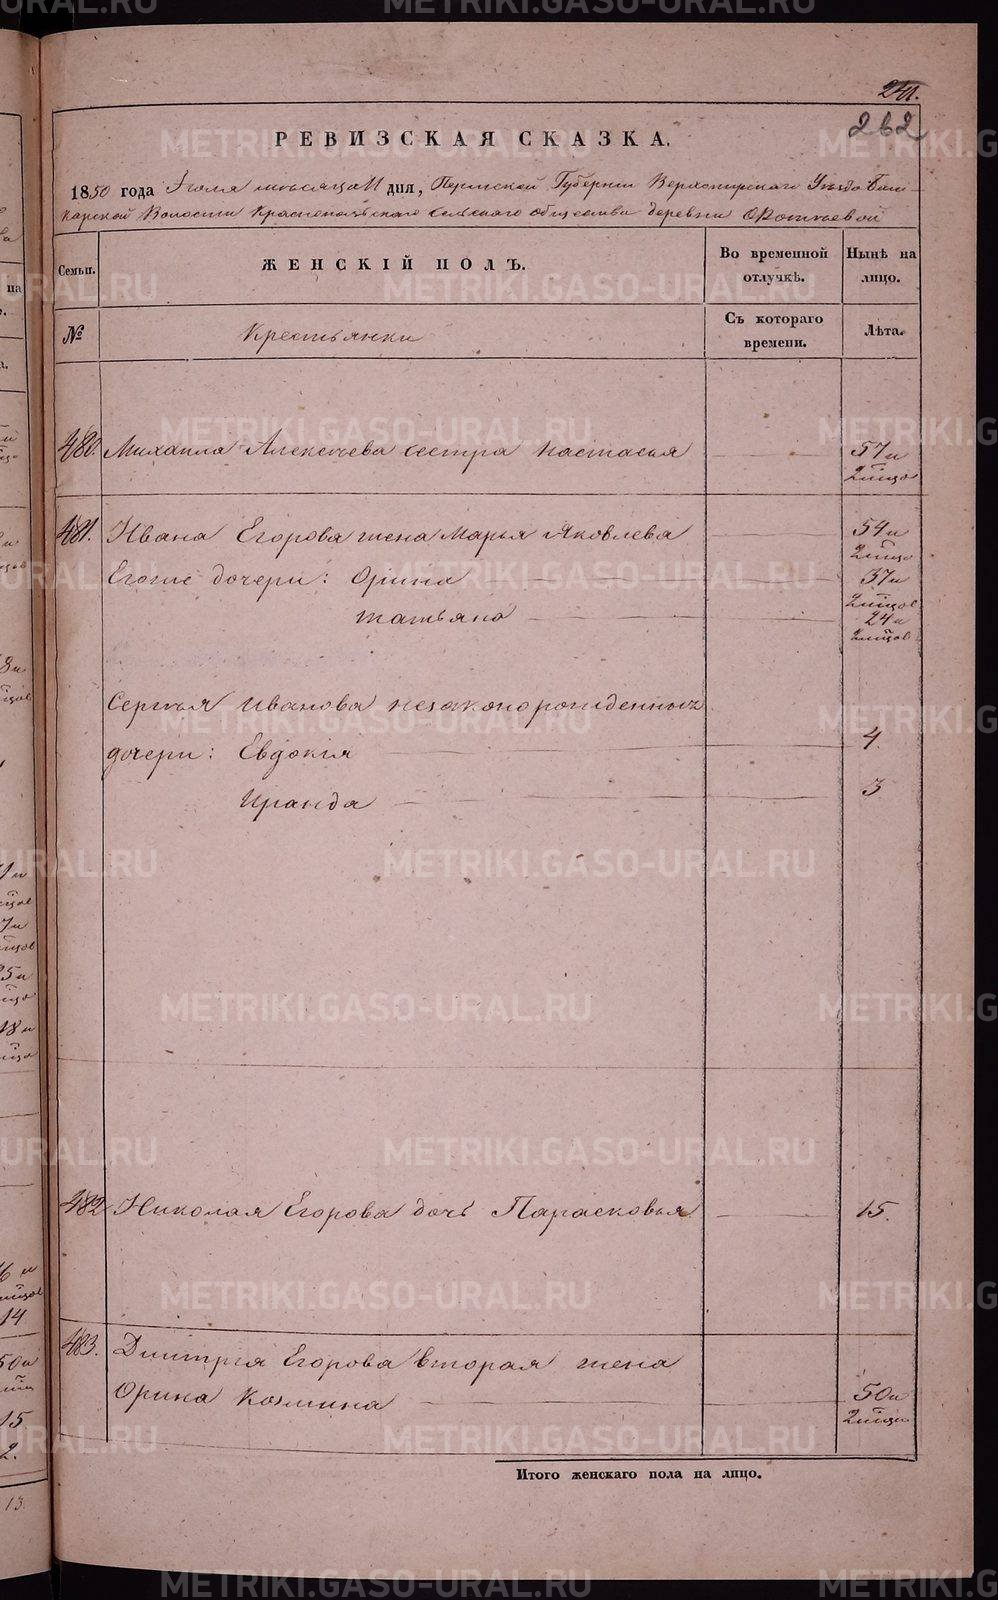 241.
262
РЕВИЗСКАЯ СКАЗКА.
1850 года Июля месяца 11 дня, Пермской Губернии Верхотурскаго Уезда Баш-
карской Волости Краснопольскаго сельскаго общества деревни
Семьи. ЖЕНСКІЙ ПОЛЪ. Во временной отлучкѣ. Нынѣ на лицо.
№ Крестьянки Съ котораго времени. Лѣта.
480. Михаила Алексѣева сестра Настасья 57 и
2 мѣсцо
481. Ивана Егорова жена Марья Яковлева 54 и
2 мѣсцо
Егоже дочери: Орина 37 и
2 мѣсцов
Татьяна 24 и
2 мѣсцов
Сергѣя Иванова незаконорожденныхъ
дочери: Евдокія 4.
Ираида 3
482 Николая Егорова дочь Парасковья 15.
483. Дмитрія Егорова вторая жена
Орина Козмина 50 и
2 мѣсцо
Итого женскаго пола на лицо.
METRIKI.GASO-URAL.RU